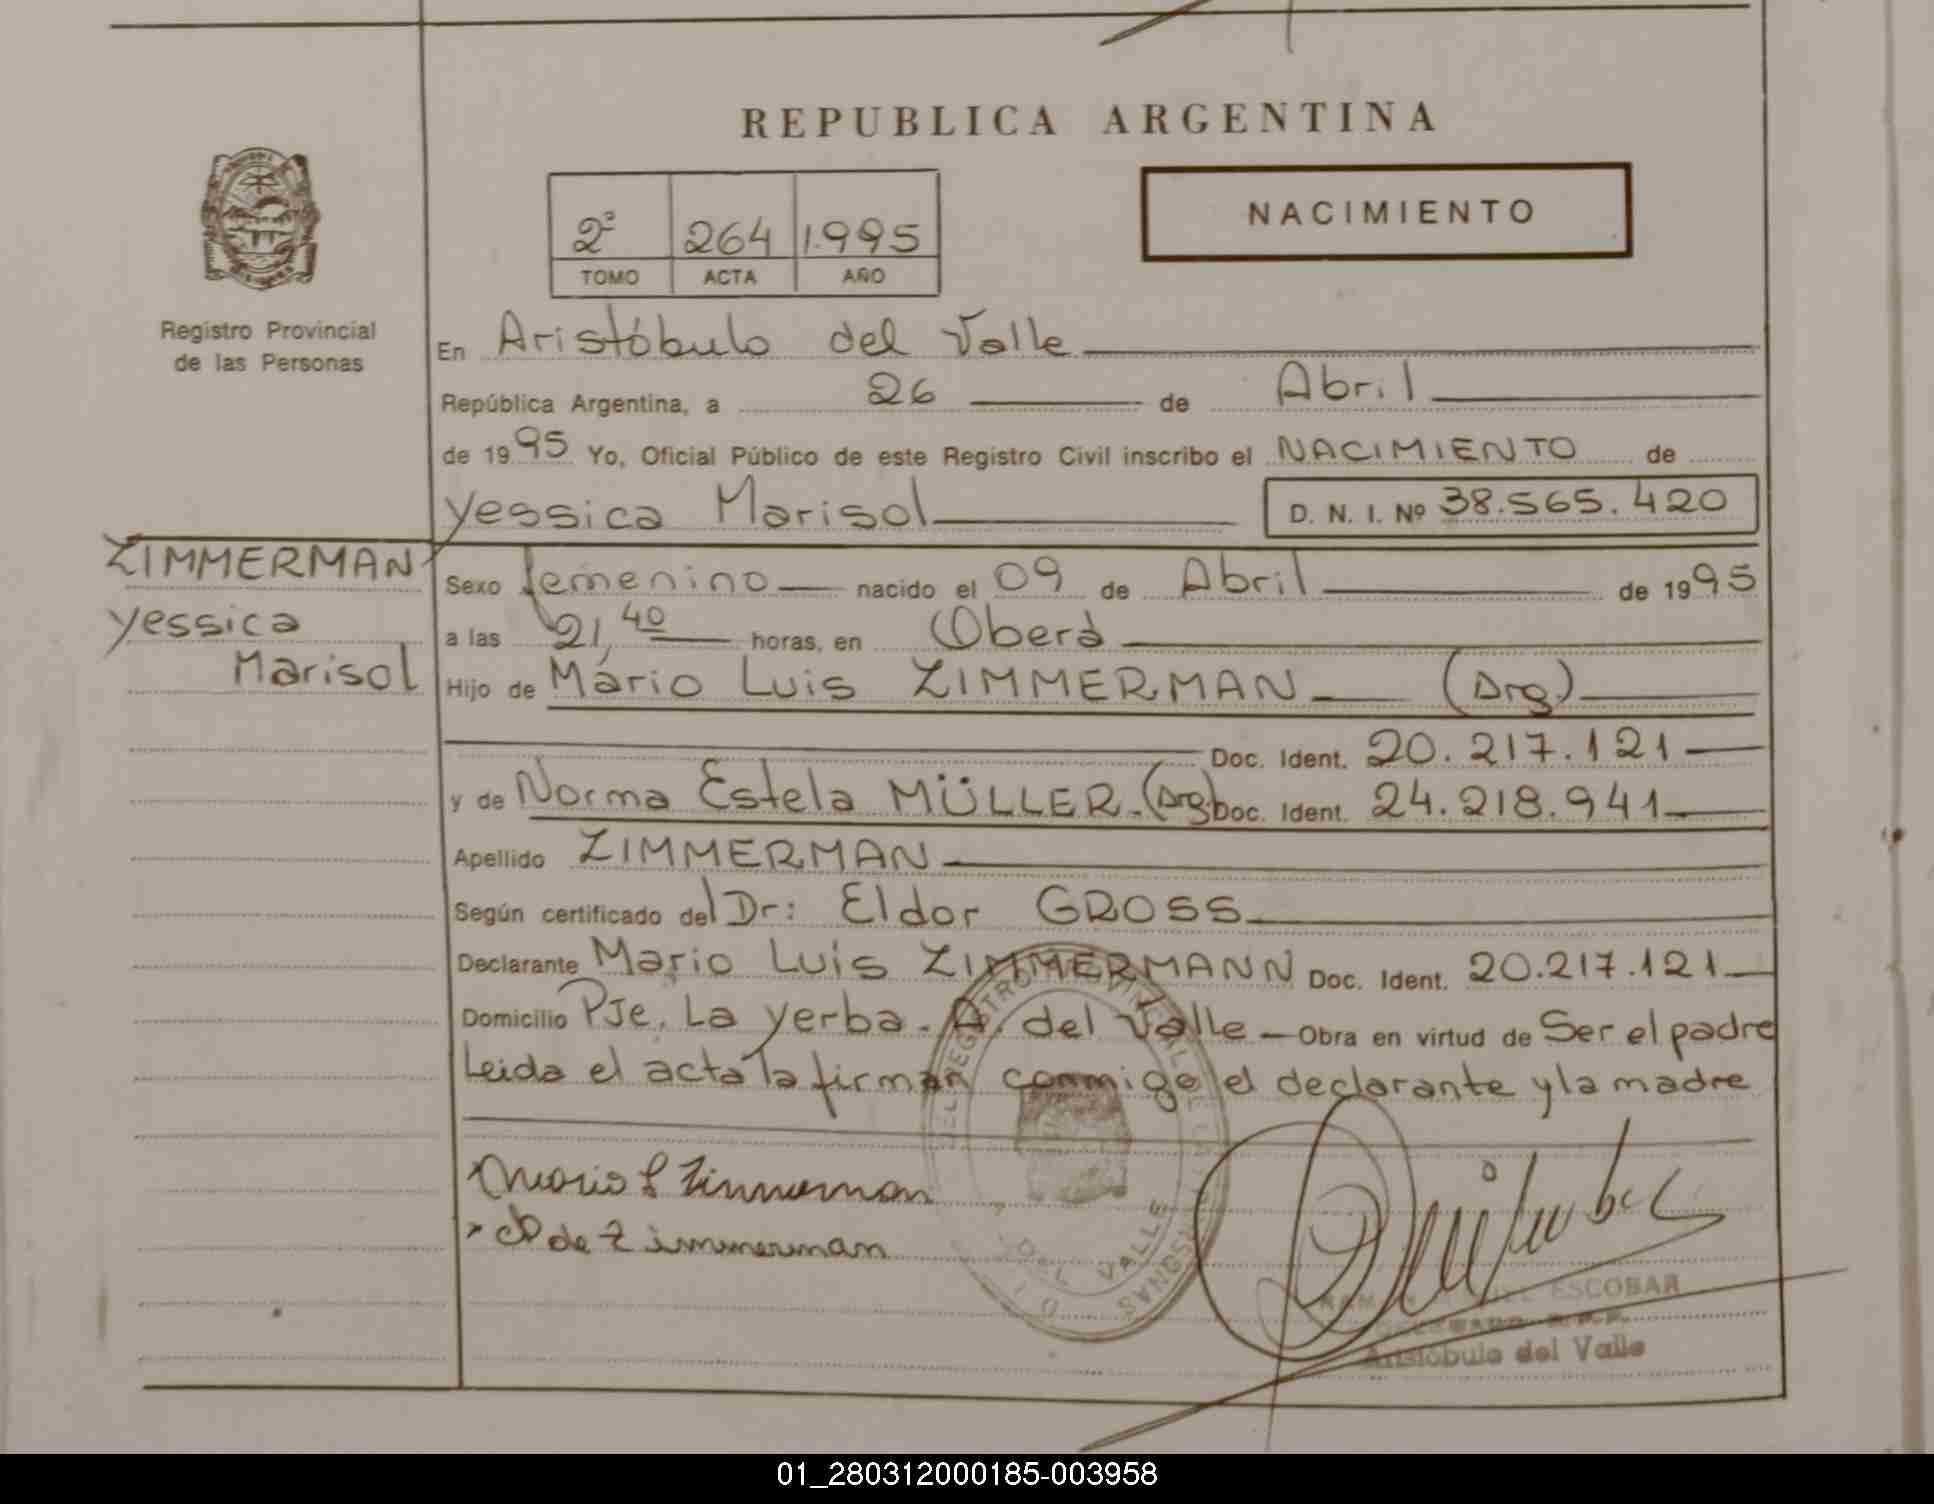 REPUBLICA ARGENTINA
NACIMIENTO
2ª 264 1.995
TOMO ACTA AÑO
Registro Provincial
de las Personas
En Aristóbulo del Valle
República Argentina, a 26 de Abril
de 1995 Yo, Oficial Público de este Registro Civil inscribo el NACIMIENTO de
Yessica Marisol D. N. I. Nº 38.565.420
ZIMMERMAN
Yessica
Marisol
Sexo femenino nacido el 09 de Abril de 1995
a las 21,40 horas, en Oberá
Hijo de Mário Luis ZIMMERMAN (Arg)
Doc. Ident. 20.217.121
y de Norma Estela MÜLLER.(Arg) Doc. Ident. 24.218.941
Apellido ZIMMERMAN
Según certificado del Dr: Eldor GROSS
Declarante Mario Luis ZIMMERMANN Doc. Ident. 20.217.121
Domicilio PJe. La Yerba. A. del Valle Obra en virtud de Ser el padre
Leida el acta la firman conmigo el declarante y la madre
Mario L Zimmerman
de Zimmerman
DEL VALLE
ESCOBAR
Aristóbulo del Valle
01_280312000185-003958